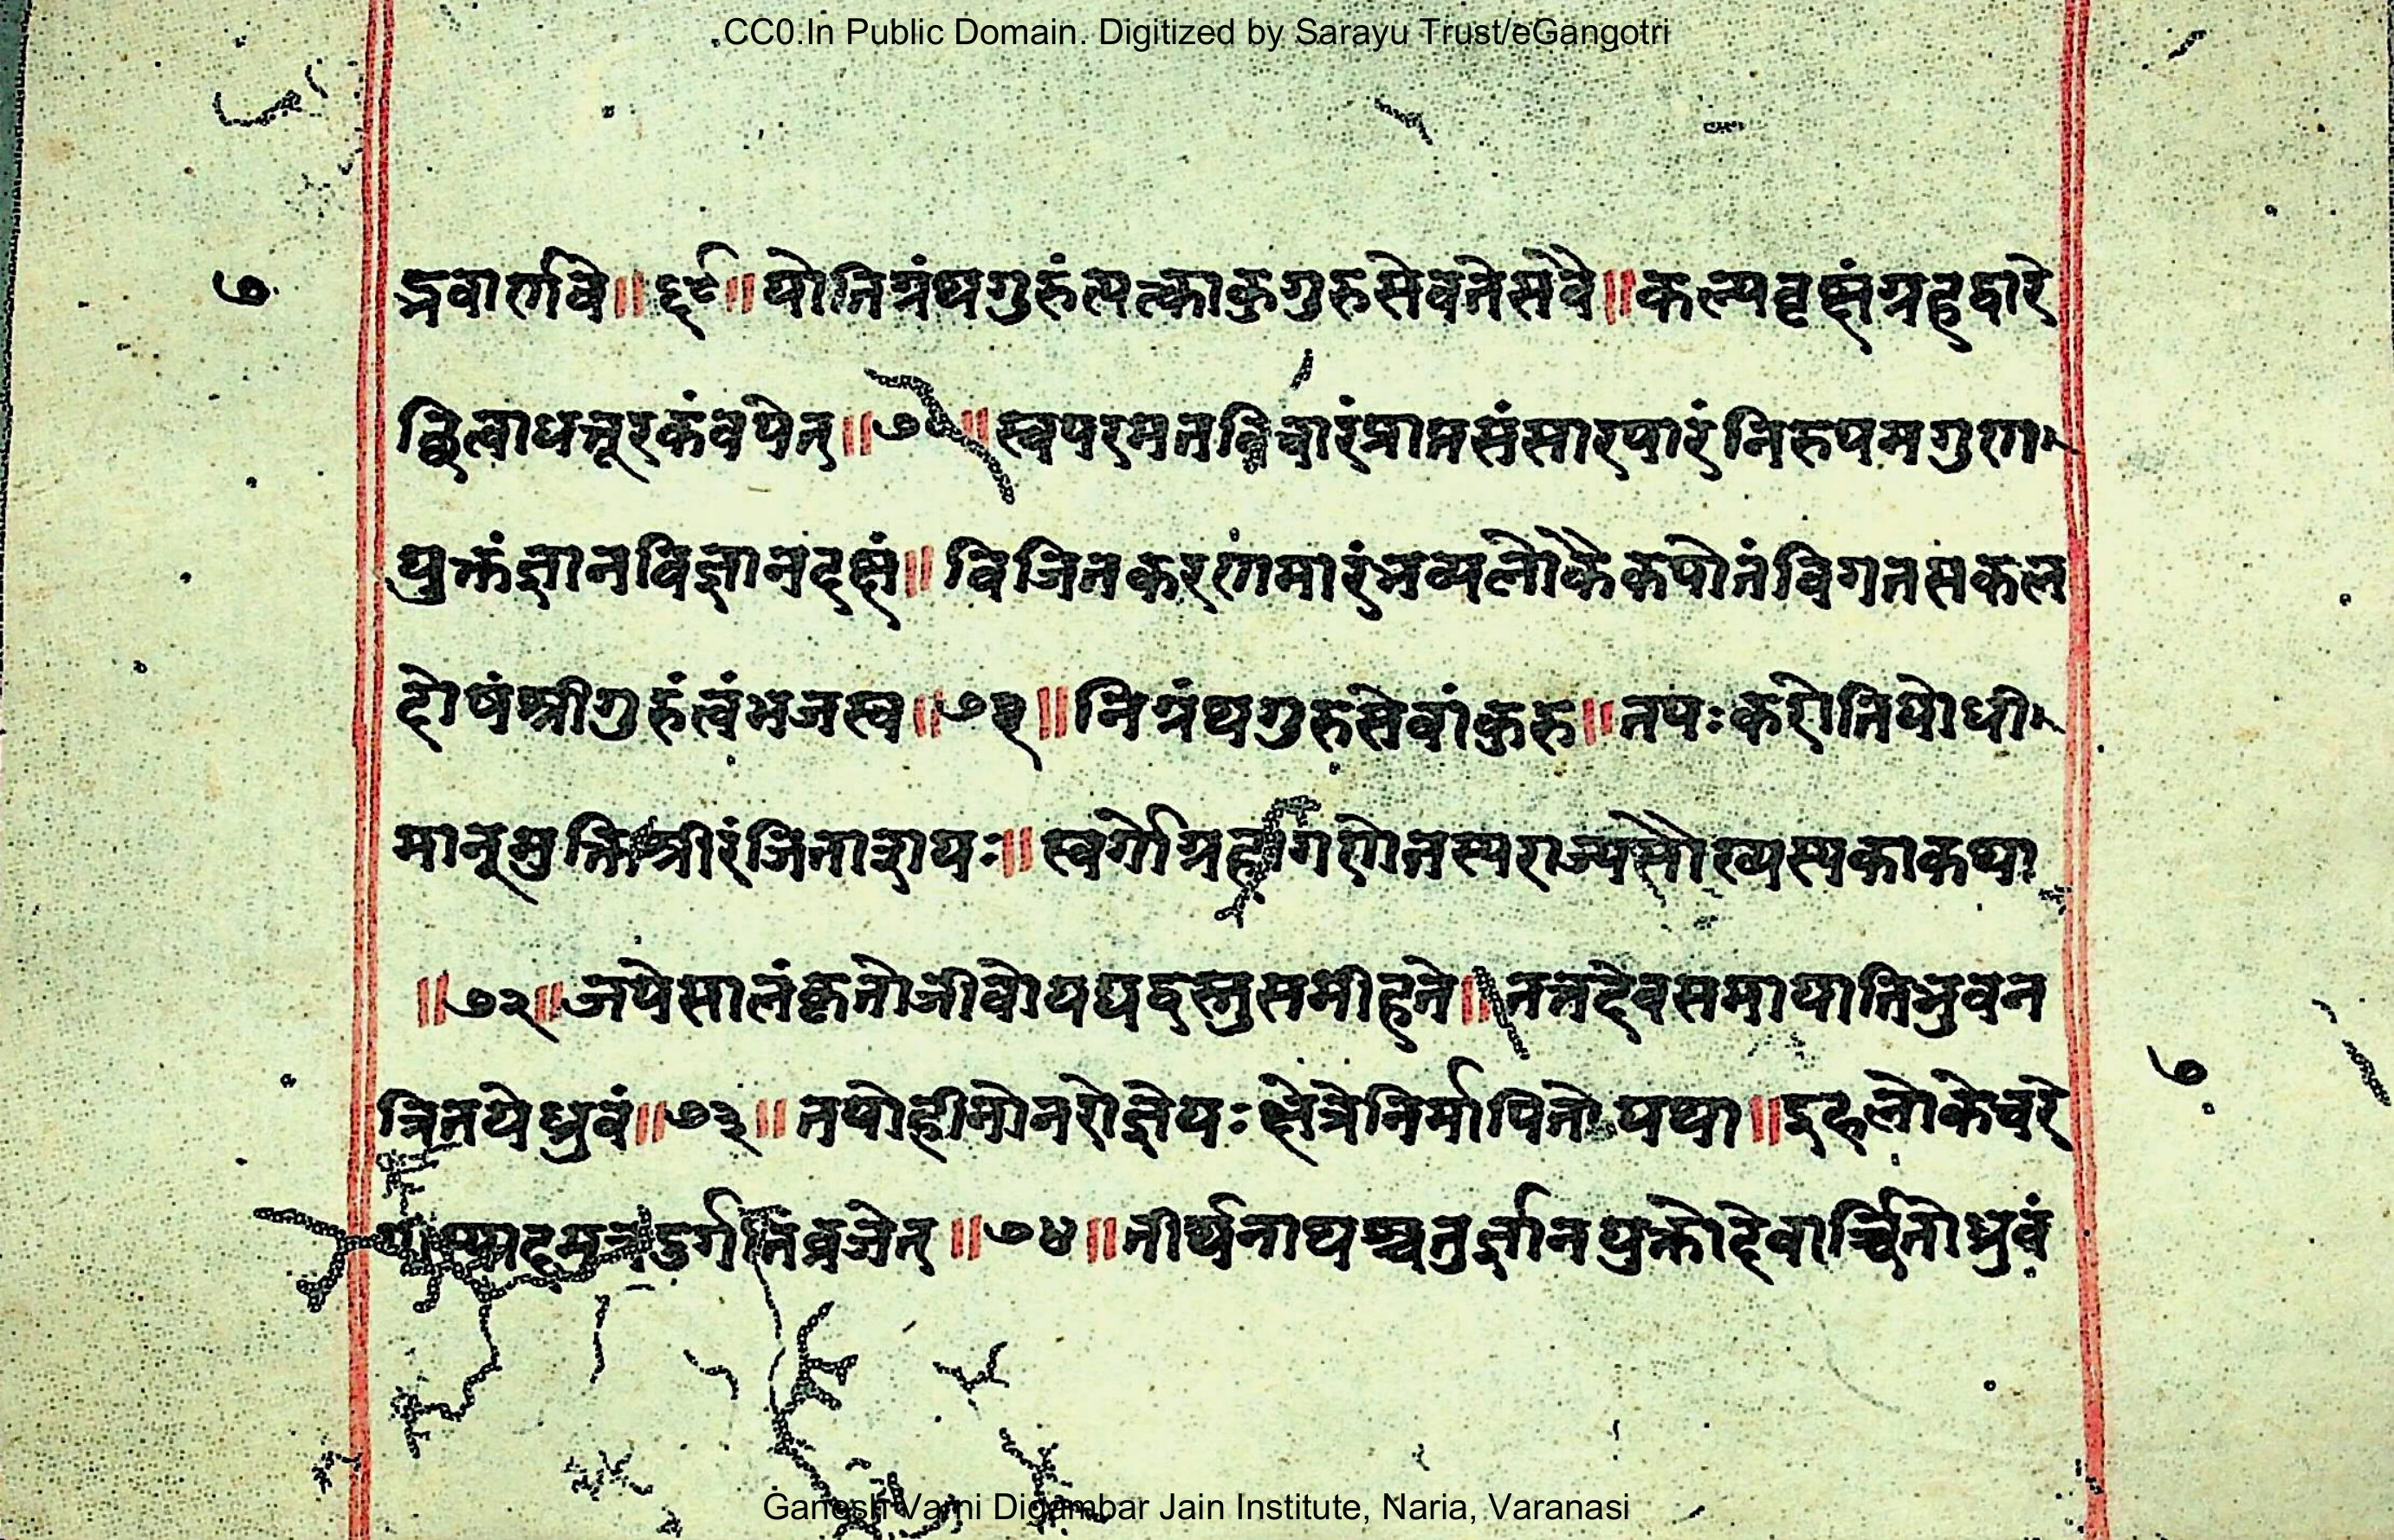 CC0.In Public Domain. Digitized by Sarayu Trust/eGangotri
७ द्भवार्णवे ॥ ६९ ॥ यो निग्रंथगुरुं त्यत्का कुगुरुसेवतेसवै ॥ कल्पवृक्षं ग्रहद्वारे
छित्वा धत्तूरकं वपेत् ॥ ७० ॥ स्वपरमतविचारं प्राप्तसंसारपारं निरुपमगुण
युक्तं ज्ञानविज्ञानदक्षं ॥ विजितकरणमारं भव्यलोकैकपोतं विगतसकल
दोषं श्रीगुरुं त्वं भजस्व ॥ ७१ ॥ निग्रंथगुरुसेवां कुरु ॥ तपः करोति यो धी
मान् मुक्तिश्रीरंजिताशयः ॥ स्वर्गो ग्रहांगणे तस्य राज्यसौख्यस्य का कथा
॥ ७२ ॥ तपेसालंकृतो जीवो यद्यद्वस्तु समीहते ॥ तत्तदेव समायाति भुवन
त्रितये ध्रुवं ॥ ७३ ॥ तपोहीनो नरो ज्ञेयः क्षेत्रे निर्मापितो यथा ॥ इहलोकेचरे
दमुत्र दुर्गतिं व्रजेत् ॥ ७४ ॥ तीर्थनाथश्चतुर्ज्ञानयुक्तो देवार्च्चितो ध्रुवं
७
Ganesh Varni Digambar Jain Institute, Naria, Varanasi